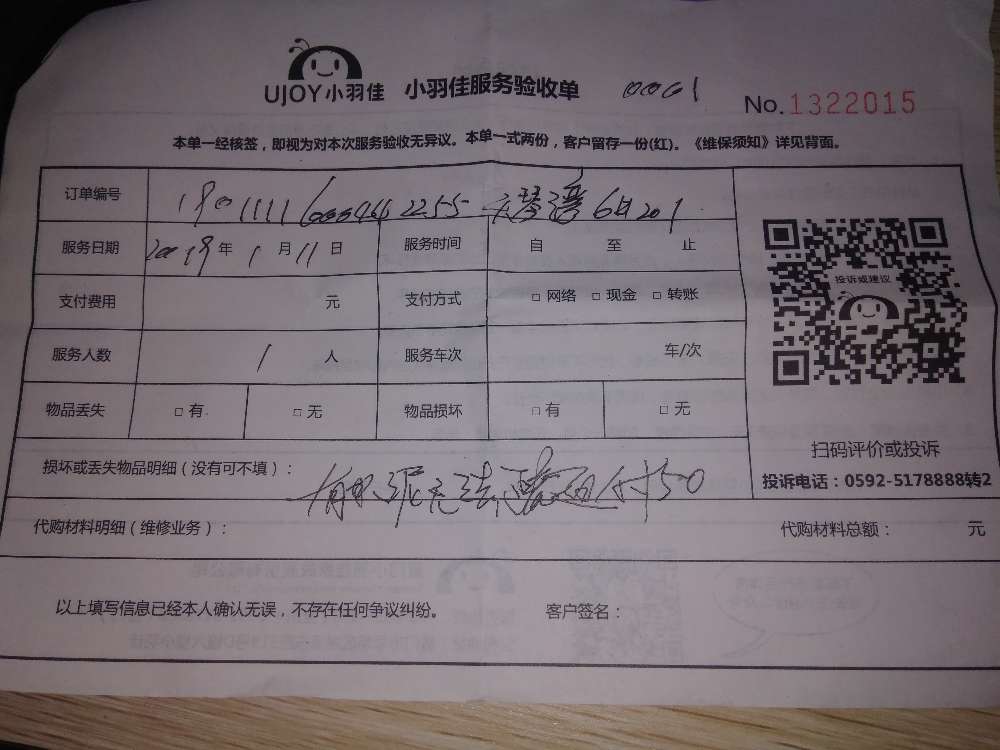 UJOY小羽佳 小羽佳服务验收单 0061 No.1322015
本单一经核签，即视为对本次服务验收无异议。本单一式两份，客户留存一份(红)。《维保须知》详见背面。
订单编号 6日201
服务日期 2019年1月11日 服务时间 自 至 止
投诉或建议
支付费用 元 支付方式 □ 网络 □ 现金 □ 转账
服务人数 1 人 服务车次 车/次
物品丢失 □ 有 □ 无 物品损坏 □ 有 □ 无
扫码评价或投诉
损坏或丢失物品明细（没有可不填）： 50
投诉电话：0592-5178888转2
代购材料明细（维修业务）： 代购材料总额： 元
以上填写信息已经本人确认无误，不存在任何争议纠纷。 客户签名：